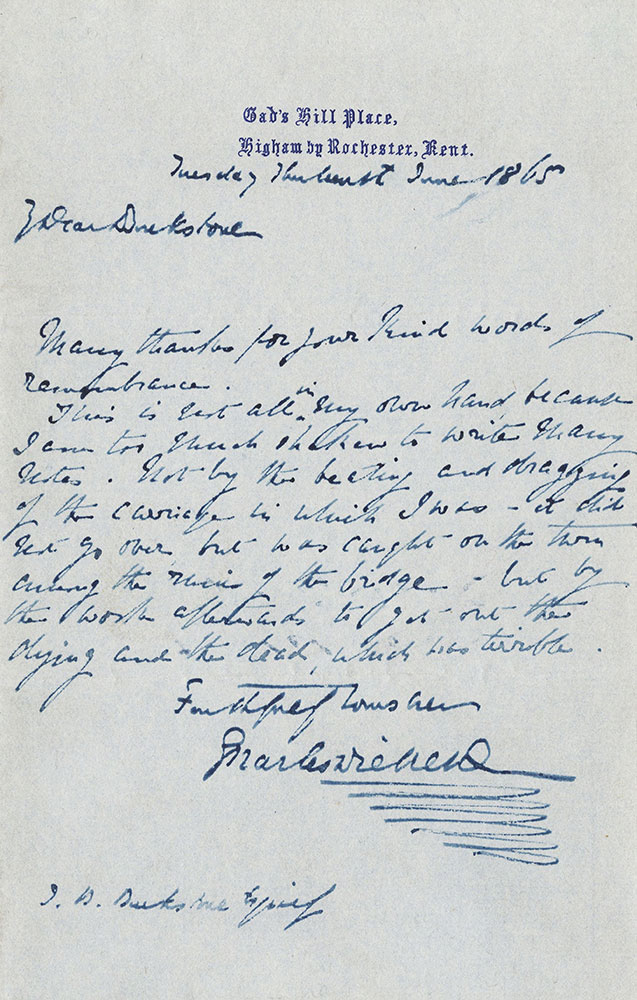 Gad's Hill Place,
Higham by Rochester, Kent.
Tuesday Thirteenth June 1865
My Dear Buckstone
Many thanks for your kind words of
remembrance.
This is not all in my own hand, because
I am too much shaken to write many
notes. Not by the beating and dragging
of the carriage in which I was - it did
not go over but was caught on the turn
among the ruin of the bridge - but by
the work afterwards to get out the
dying and the dead, which was terrible.
Faithfully Yours ever
Charles Dickens
J. B. Buckstone Esquire